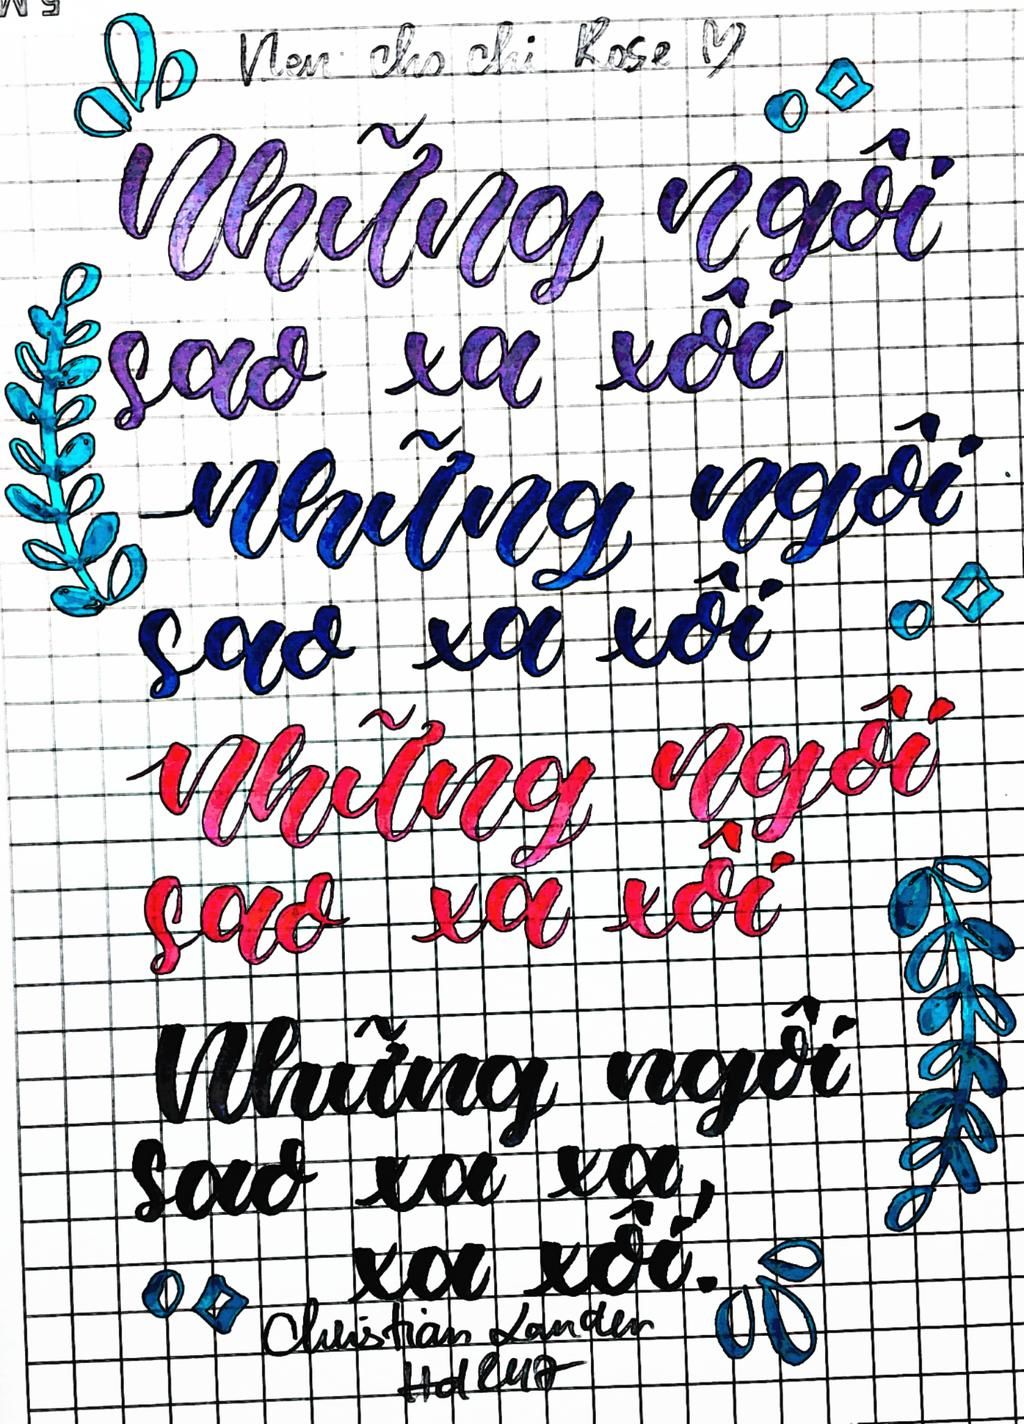 cho chi Rose
Những ngôi
sao xa xôi
Những ngôi
sao xa xôi
Những ngôi
sao xa xôi
Những ngôi
sao xa xa,
xa xôi.
Christian Landen
Hd247